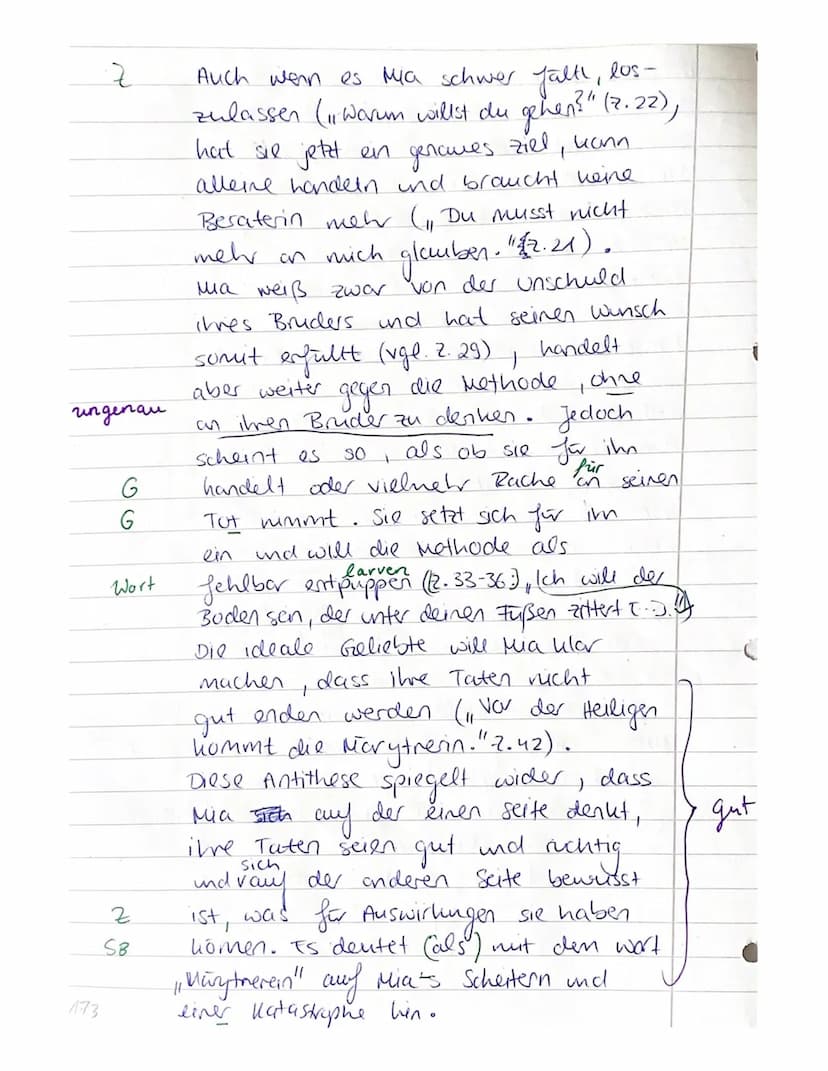 Z Auch wenn es Mia schwer fällt, los-
zulassen („Warum willst du gehen?" (Z.22),
hat sie jetzt ein genaues Ziel, kann
alleine handeln und braucht keine
Beraterin mehr („Du musst nicht
mehr an mich glauben."(Z.21).
Mia weiß zwar von der Unschuld
ihres Bruders und hat seinen Wunsch
somit erfüllt (vgl. Z. 29), handelt
aber weiter gegen die Methode, ohne
ungenau an ihren Bruder zu denken. Jedoch
scheint es so, als ob sie für ihn
für
G handelt oder vielmehr Rache an seinen
G Tot nimmt. Sie setzt sich für ihn
ein und will die Methode als
larven
Wort fehlbar entpuppen (Z. 33-36:„Ich will der
Boden sein, der unter deinen Füßen zittert [...].")
Die ideale Geliebte will Mia klar
machen, dass ihre Taten nicht
gut enden werden („Vor der Heiligen
kommt die Märytrerin."Z.42).
Diese Antithese spiegelt wider, dass
Mia auf der einen Seite denkt, gut
ihre Taten seien gut und richtig
sich
und auf der anderen Seite bewusst
Z ist, was für Auswirkungen sie haben
SB können. Es deutet (als) mit den Wort
„Märytrerein" auf Mia's Scheitern und
173 einer Katastrophe hin.